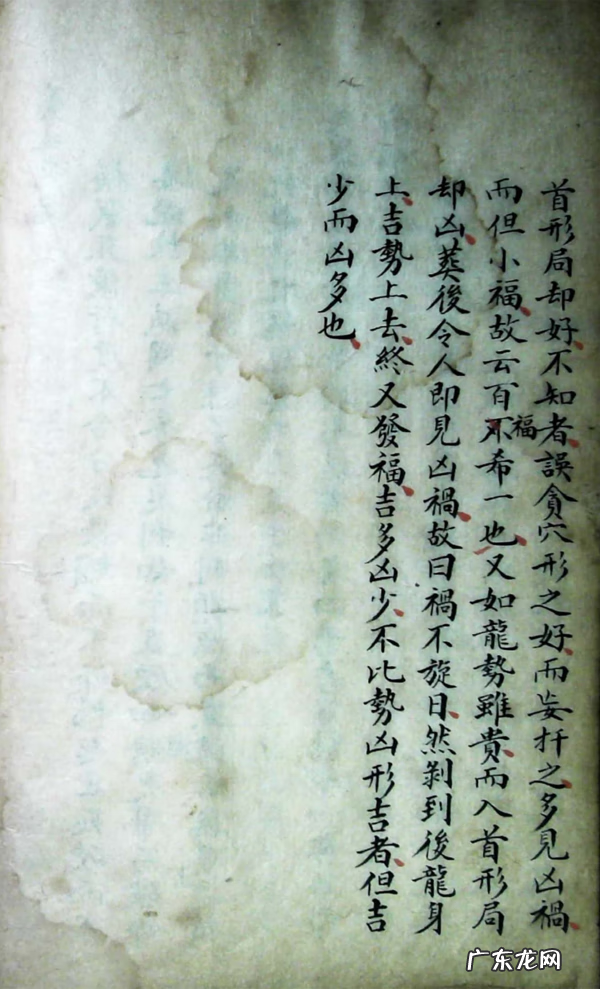 首形局却好不知者誤貪穴形之好而妄扦之多見凶禍
而但小福故云百不福希一也又如龍勢雖貴而入首形局
却凶葬後令人即見凶禍故曰禍不旋日然剝到後龍身
上吉勢上去終又發福吉多凶少不比勢凶形吉者但吉
少而凶多也
广东龙网